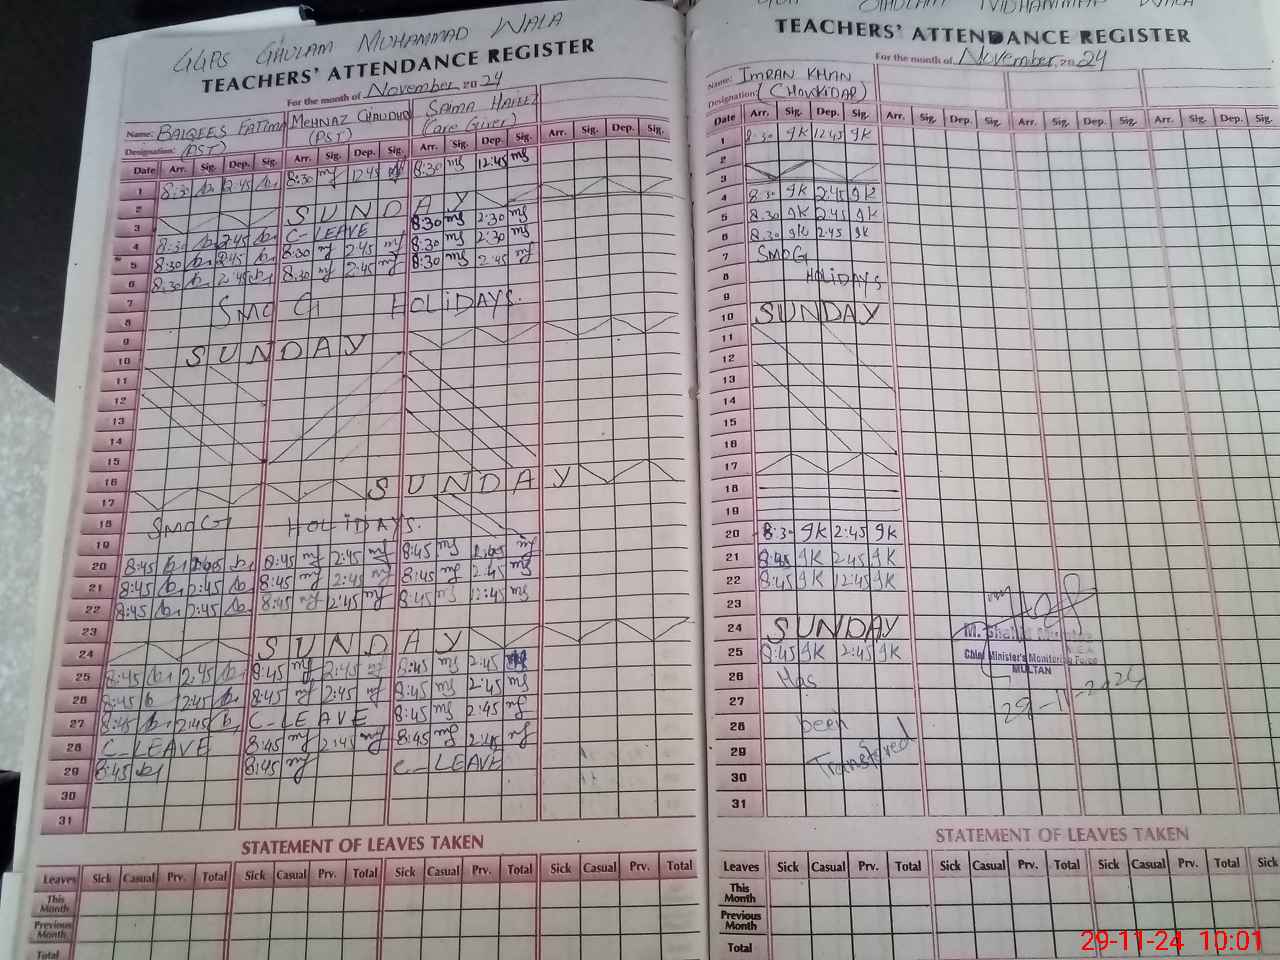 GGPS GHULAM MUHAMMAD WALA
TEACHERS' ATTENDANCE REGISTER
For the month of November 2024
Name: BALQEES FATIMA MEHNAZ CHAUDHRY SAMA HAFEEZ
Designation: (PST) (PST) (Care Giver)
Date Arr. Sig. Dep. Sig. Arr. Sig. Dep. Sig. Arr. Sig. Dep. Sig. Arr. Sig. Dep. Sig.
1 8:30 2:45 8:30 12:45 8:30 12:45
2
3 SUNDAY
4 8:30 2:45 C-LEAVE 8:30 2:30
5 8:30 2:45 8:30 2:45 8:30 2:30
6 8:30 2:45 8:30 2:45 8:30 2:45
7 SMOG HOLIDAYS.
8
9
10 SUNDAY
11
12
13
14
15
16
17 SUNDAY
18 SMOG HOLIDAYS.
19
20 8:45 8:45 2:45 8:45
21 8:45 2:45 8:45 2:45 8:45 2:45
22 8:45 2:45 8:45 2:45 8:45 12:45
23
24 SUNDAY
25 8:45 2:45 8:45 2:45 8:45 2:45
26 8:45 2:45 8:45 2:45 8:45 2:45
27 8:45 2:45 C-LEAVE 8:45 2:45
28 C-LEAVE 8:45 2:45 8:45 2:45
29 8:45 8:45 C-LEAVE
30
31
STATEMENT OF LEAVES TAKEN
Leaves Sick Casual Prv. Total Sick Casual Prv. Total Sick Casual Prv. Total Sick Casual Prv. Total
This Month
Previous Month
Total
GHULAM MUHAMMAD WALA
TEACHERS' ATTENDANCE REGISTER
For the month of November, 2024
Name: IMRAN KHAN
Designation (CHOWKIDAR)
Date Arr. Sig. Dep. Sig. Arr. Sig. Dep. Sig. Arr. Sig. Dep. Sig. Arr. Sig. Dep. Sig.
1 8:30 9K 12:45 9K
2
3
4 8:30 9K 2:45 9K
5 8:30 9K 2:45 9K
6 8:30 9K 2:45 9K
7 SMOG
8 HOLIDAYS
9
10 SUNDAY
11
12
13
14
15
16
17
18
19
20 8:30 9K 2:45 9K
21 8:45 9K 2:45 9K
22 8:45 9K 12:45 9K
23
24 SUNDAY
25 8:45 9K 2:45 9K
26 Has
27
28 been
29 Transfered
30
31
Chief Minister's Monitoring Force
MULTAN
29-11-2024
STATEMENT OF LEAVES TAKEN
Leaves Sick Casual Prv. Total Sick Casual Prv. Total Sick Casual Prv. Total Sick
This Month
Previous Month
Total
29-11-24 10:01